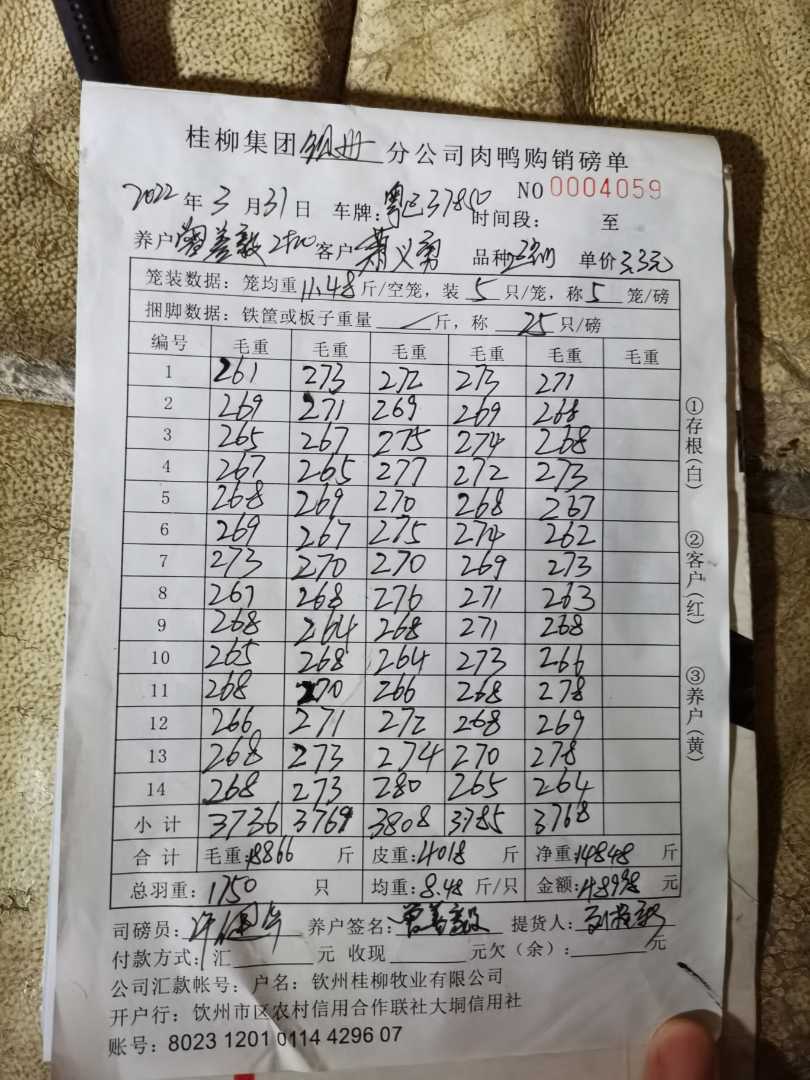 桂柳集团 分公司肉鸭购销磅单
NO 0004059
2022年3月31日 车牌:粤 37850 时间段: 至
养户 曾善毅 客户 萧义勇 品种 单价3.3元
笼装数据:笼均重11.48斤/空笼,装5只/笼,称5笼/磅
捆脚数据:铁筐或板子重量/斤,称25只/磅
编号 毛重 毛重 毛重 毛重 毛重 毛重
1 261 273 272 273 271
2 269 271 269 269 268
3 265 267 275 274 268
4 267 265 277 272 273
5 268 269 270 268 267
6 269 267 275 274 262
7 273 270 270 269 273
8 261 268 276 271 263
9 268 264 268 271 268
10 265 268 264 273 266
11 268 270 266 268 278
12 266 271 272 268 269
13 268 273 274 270 278
14 268 273 280 265 264
小计 3736 3769 3808 3785 3768
合计 毛重:18866斤 皮重:4018斤 净重:14848斤
总羽重:1750只 均重:8.48斤/只 金额:48998元
司磅员: 养户签名:曾善毅 提货人:
付款方式:汇 元 收现 元欠(余): 元
公司汇款帐号:户名:钦州桂柳牧业有限公司
开户行:钦州市区农村信用合作联社大垌信用社
账号:8023 1201 0114 4296 07
①存根(白)
②客户(红)
③养户(黄)